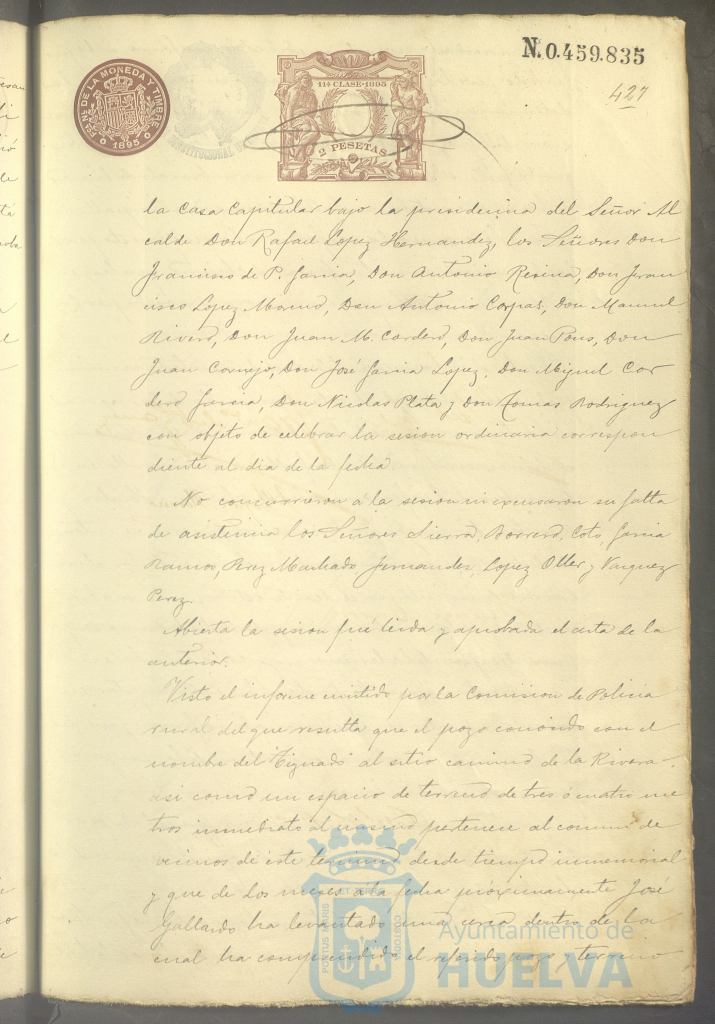 FÁB. NAL. DE LA MONEDA Y TIMBRE
1895
CONSTITUCIONAL
11ª CLASE-1895
2 PESETAS
N.0.459.835
427
la Casa Capitular bajo la presidencia del Señor Al
calde Don Rafael Lopez Hernandez, los Señores Don
Francisco de P. Garcia, Don Antonio Resina, Don Fran
cisco Lopez Moreno, Don Antonio Corpas, Don Manuel
Rivero, Don Juan M. Cordero, Don Juan Pons, Don
Juan Cornejo, Don José Garcia Lopez, Don Miguel Cor
dero Garcia, Don Nicolas Plata y Don Tomas Rodriguez
con objeto de celebrar la sesion ordinaria correspon
diente al dia de la fecha.
No concurrieron á la sesion ni excusaron su falta
de asistencia los Señores Sierra, Borrero, Coto, Garcia
Ramos, Perez Machado, Fernandez, Lopez Oller y Vazquez
Perez.
Abierta la sesion fué leida y aprobada el acta de la
anterior.
Visto el informe emitido por la Comision de Policia
rural del que resulta que el pozo conocido con el
nombre del al sitio camino de la Rivera,
asi como un espacio de terreno de tres ó cuatro me
tros inmediato al mismo pertenece al comun de
vecinos de este termino desde tiempo inmemorial
y que de dos meses á la fecha próximamente José
Gallardo ha levantado una cerca dentro de la
cual ha comprendido el referido pozo y terreno
PORTUS MARIS
ET TERRE
CUSTODIA
Ayuntamiento de
HUELVA